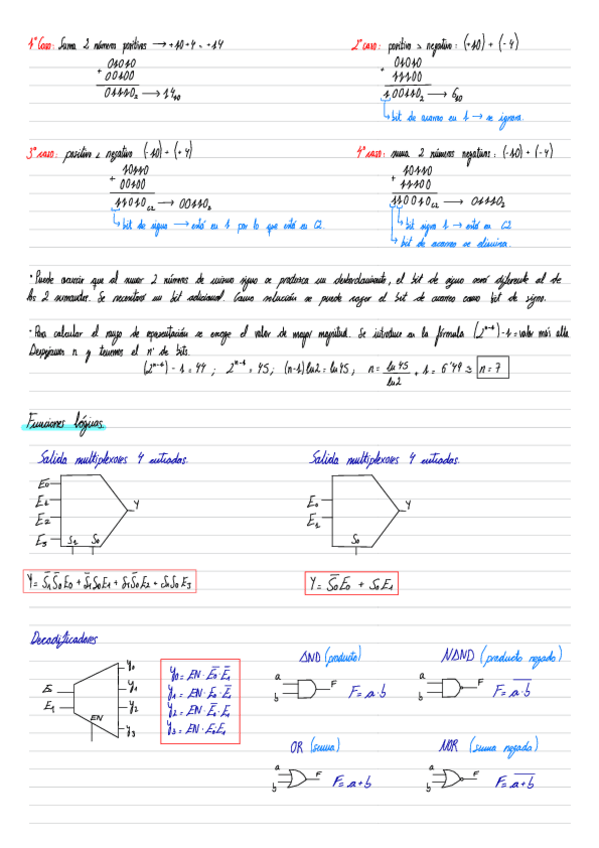 1º Caso: Suma 2 números positivos → +10+4 = +14
01010
+
00100
01110₂ → 14₁₀
2º caso: positivo > negativo: (+10) + (-4)
01010
+
11100
1 00110₂ → 6₁₀
bit de acarreo en 1 → se ignora.
3º caso: positivo < negativo (-10) + (+4)
10110
+
00100
11010 C2 → 00110₂
bit de signo → está en 1 por lo que está en C2.
4º caso: suma 2 números negativos: (-10) + (-4)
10110
+
11100
110010 C2 → 01110₂
bit signo 1 → está en C2
bit de acarreo se elimina.
· Puede ocurrir que al sumar 2 números de mismo signo se produzca un desbordamiento, el bit de signo será diferente al de
los 2 sumandos. Se necesitará un bit adicional. Como solución se puede coger el bit de acarreo como bit de signo.
- Para calcular el rango de representación se escoge el valor de mayor magnitud. Se introduce en la fórmula (2ⁿ⁻¹)-1 = valor más alto
Despejamos n y tenemos el nº de bits.
(2ⁿ⁻¹) - 1 = 44 ; 2ⁿ⁻¹ = 45; (n-1) ln2 = ln45, n = ln 45 / ln2 + 1 = 6'49 ≈ n = 7
Funciones lógicas
Salida multiplexores 4 entradas.
Salida multiplexores 4 entradas.
E₀
E₁
E₂
E₃
S₁ S₀
Y
E₀
E₁
S₀
Y
Y = S̅₁S̅₀E₀ + S̅₁S₀E₁ + S₁S̅₀E₂ + S₁S₀E₃
Y = S̅₀E₀ + S₀E₁
Decodificadores
E₁
EN
y₀
y₁
y₂
y₃
y₀ = EN · E̅₀ · E̅₁
y₁ = EN · E₀ · E̅₁
y₂ = EN · E̅₀ · E₁
y₃ = EN · E₀E₁
AND (producto)
a
b
F
F = a · b
NAND (producto negado)
a
b
F
F = a̅ ·̅ b̅
OR (suma)
a
b
F
F = a + b
NOR (suma negado)
a
b
F
F = a̅ +̅ b̅